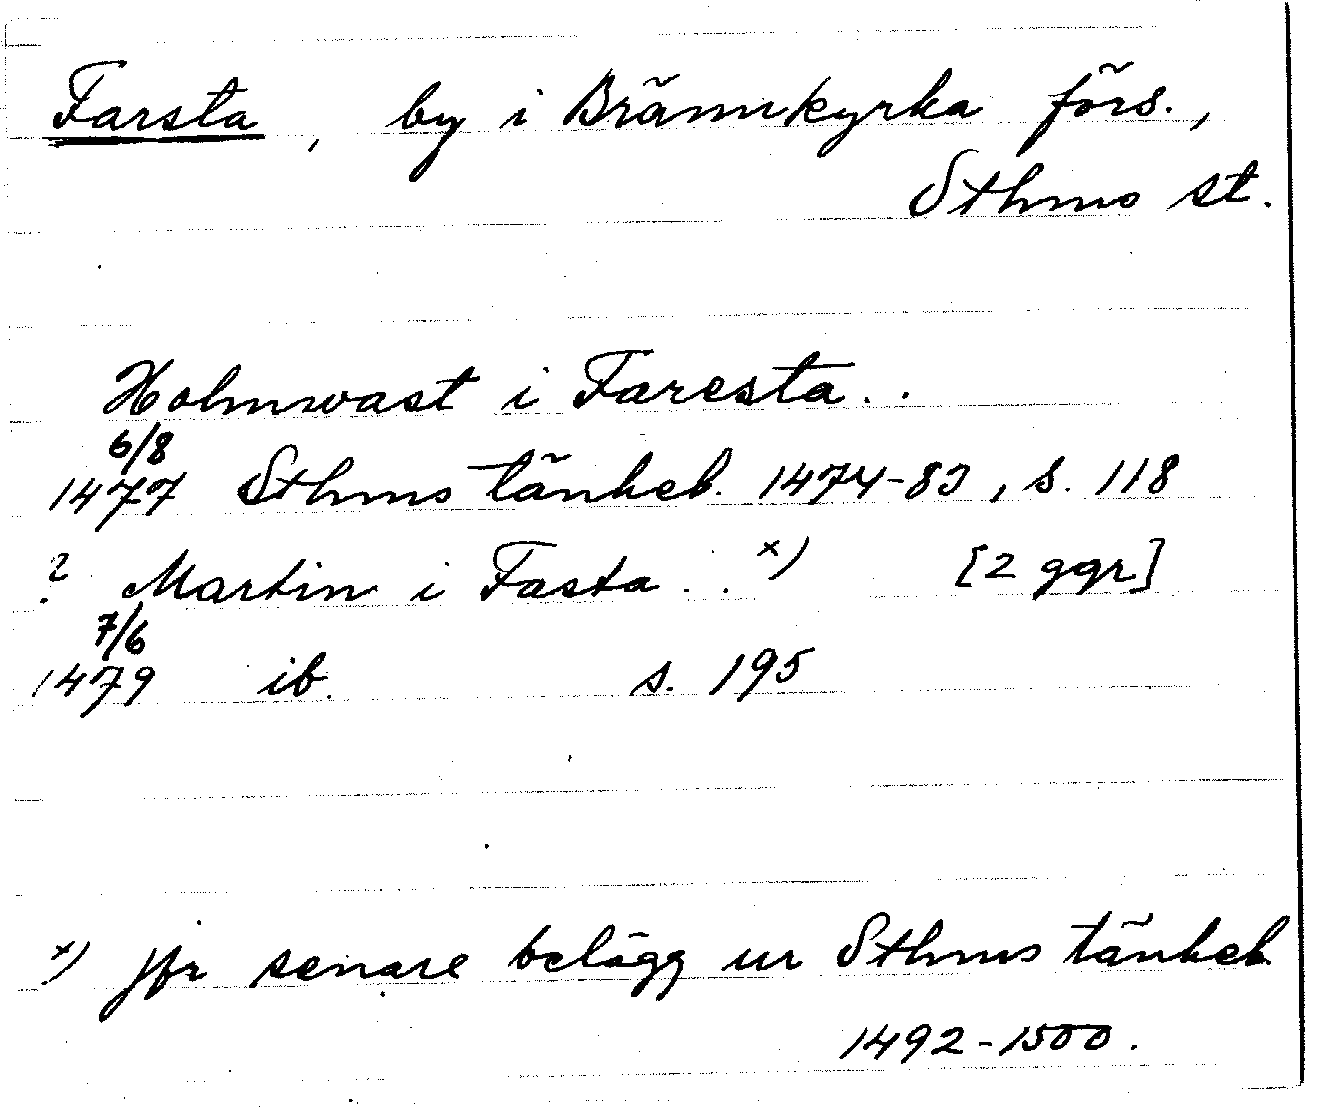 Farsta, by i Brännkyrka förs.,
Sthms st.
Holmwast i Faresta..
6/8
1477 Sthms tänkeb. 1474-83, s. 118
? Martin i Fasta.. x) [2 ggr]
7/6
1479 ib. s. 195
x) jfr senare belägg ur Sthms tänkeb.
1492-1500.